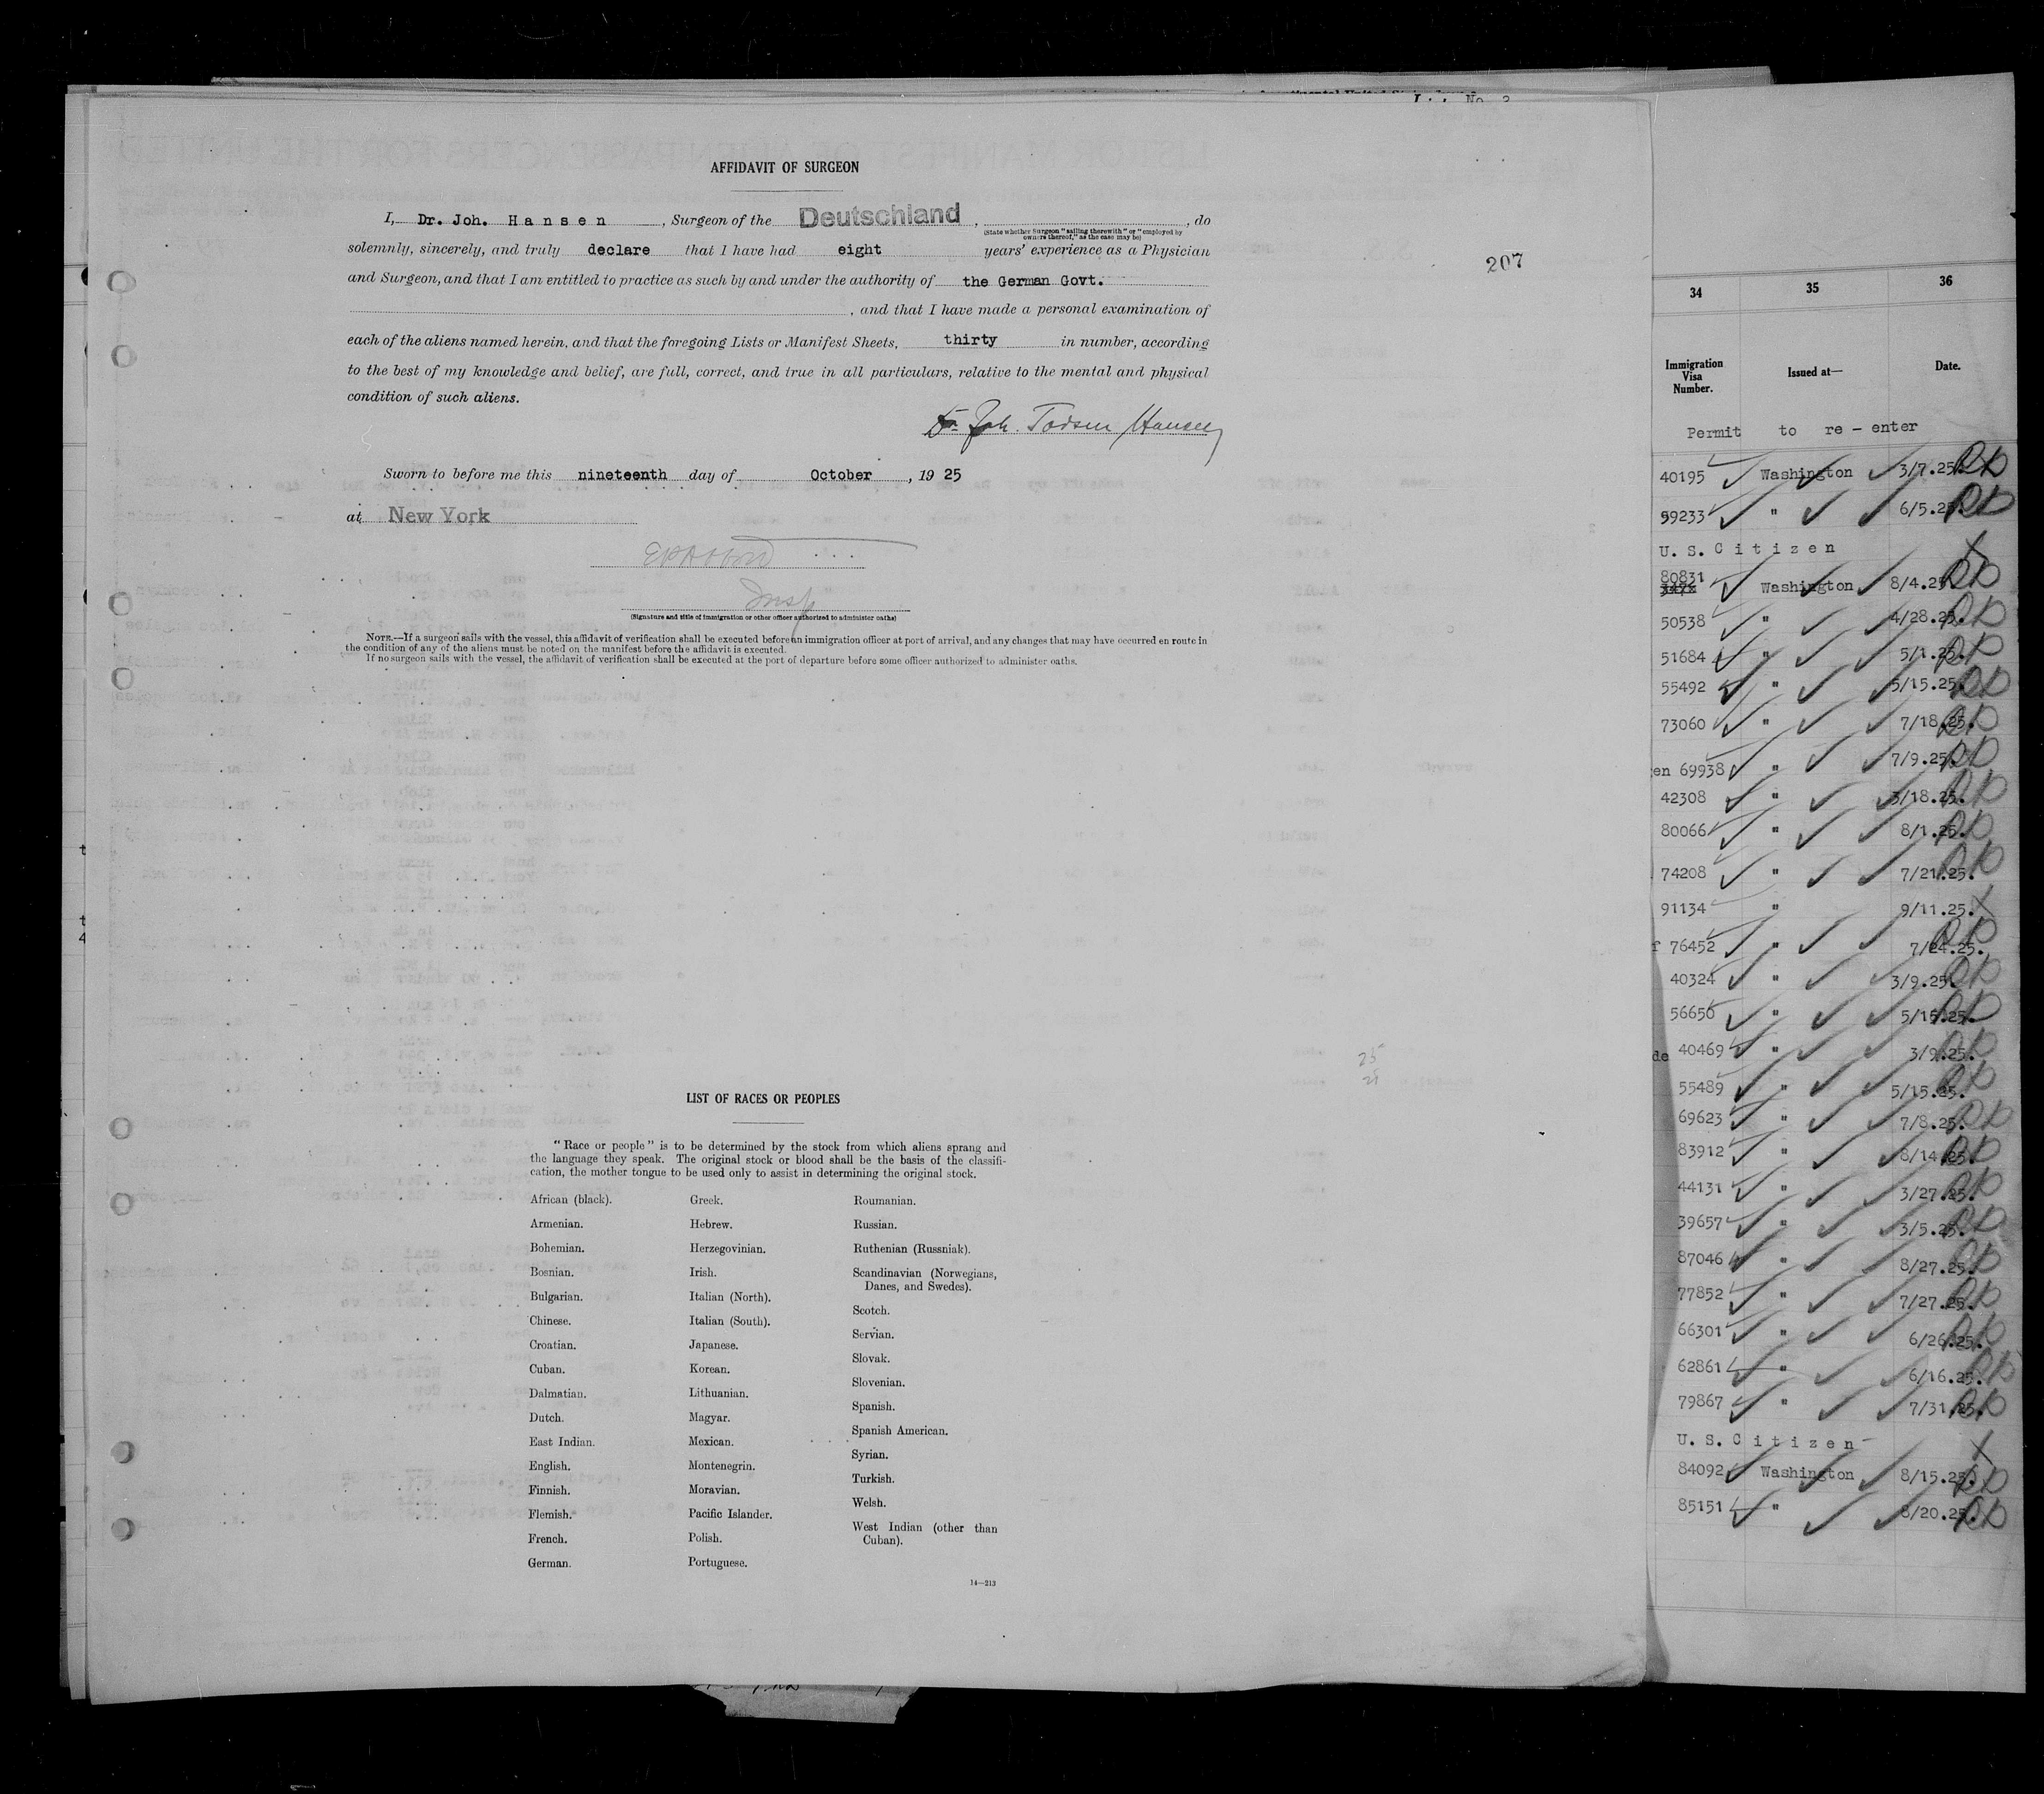 List No. 2
AFFIDAVIT OF SURGEON
I, Dr. Joh. Hansen, Surgeon of the Deutschland, , do
(State whether Surgeon "sailing therewith" or "employed by
owners thereof," as the case may be)
solemnly, sincerely, and truly declare that I have had eight years' experience as a Physician
and Surgeon, and that I am entitled to practice as such by and under the authority of the German Govt.
, and that I have made a personal examination of
each of the aliens named herein, and that the foregoing Lists or Manifest Sheets, thirty in number, according
to the best of my knowledge and belief, are full, correct, and true in all particulars, relative to the mental and physical
condition of such aliens.
Dr. Joh. Todsen Hansen
Sworn to before me this nineteenth day of October, 1925
at New York
Insp
(Signature and title of immigration or other officer authorized to administer oaths)
NOTE.—If a surgeon sails with the vessel, this affidavit of verification shall be executed before an immigration officer at port of arrival, and any changes that may have occurred en route in
the condition of any of the aliens must be noted on the manifest before the affidavit is executed.
If no surgeon sails with the vessel, the affidavit of verification shall be executed at the port of departure before some officer authorized to administer oaths.
207
25
LIST OF RACES OR PEOPLES
"Race or people" is to be determined by the stock from which aliens sprang and
the language they speak. The original stock or blood shall be the basis of the classifi-
cation, the mother tongue to be used only to assist in determining the original stock.
African (black).
Armenian.
Bohemian.
Bosnian.
Bulgarian.
Chinese.
Croatian.
Cuban.
Dalmatian.
Dutch.
East Indian.
English.
Finnish.
Flemish.
French.
German.
Greek.
Hebrew.
Herzegovinian.
Irish.
Italian (North).
Italian (South).
Japanese.
Korean.
Lithuanian.
Magyar.
Mexican.
Montenegrin.
Moravian.
Pacific Islander.
Polish.
Portuguese.
Roumanian.
Russian.
Ruthenian (Russniak).
Scandinavian (Norwegians,
Danes, and Swedes).
Scotch.
Servian.
Slovak.
Slovenian.
Spanish.
Spanish American.
Syrian.
Turkish.
Welsh.
West Indian (other than
Cuban).
14—213
34 35 36
Immigration
Visa
Number.
Issued at—
Date.
Permit to re-enter
40195 Washington 3/7.25.
59233 " 6/5.25.
U. S. Citizen
80831
Washington 8/4.25.
50538 " 4/28.25.
51684 " 5/1.25.
55492 " 5/15.25.
73060 " 7/18.25.
en 69938 " 7/9.25.
42308 " 3/18.25.
80066 " 8/1.25.
74208 " 7/21.25.
91134 " 9/11.25.
f 76452 " 7/24.25.
40324 " 3/9.25.
56650 " 5/15.25.
de 40469 " 3/9.25.
55489 " 5/15.25.
69623 " 7/8.25.
83912 " 8/14.25.
44131 " 3/27.25.
39657 " 3/5.25.
87046 " 8/27.25.
77852 " 7/27.25.
66301 " 6/26.25.
62861 " 6/16.25.
79867 " 7/31.25.
U. S. Citizen
84092 Washington 8/15.25.
85151 " 8/20.25.